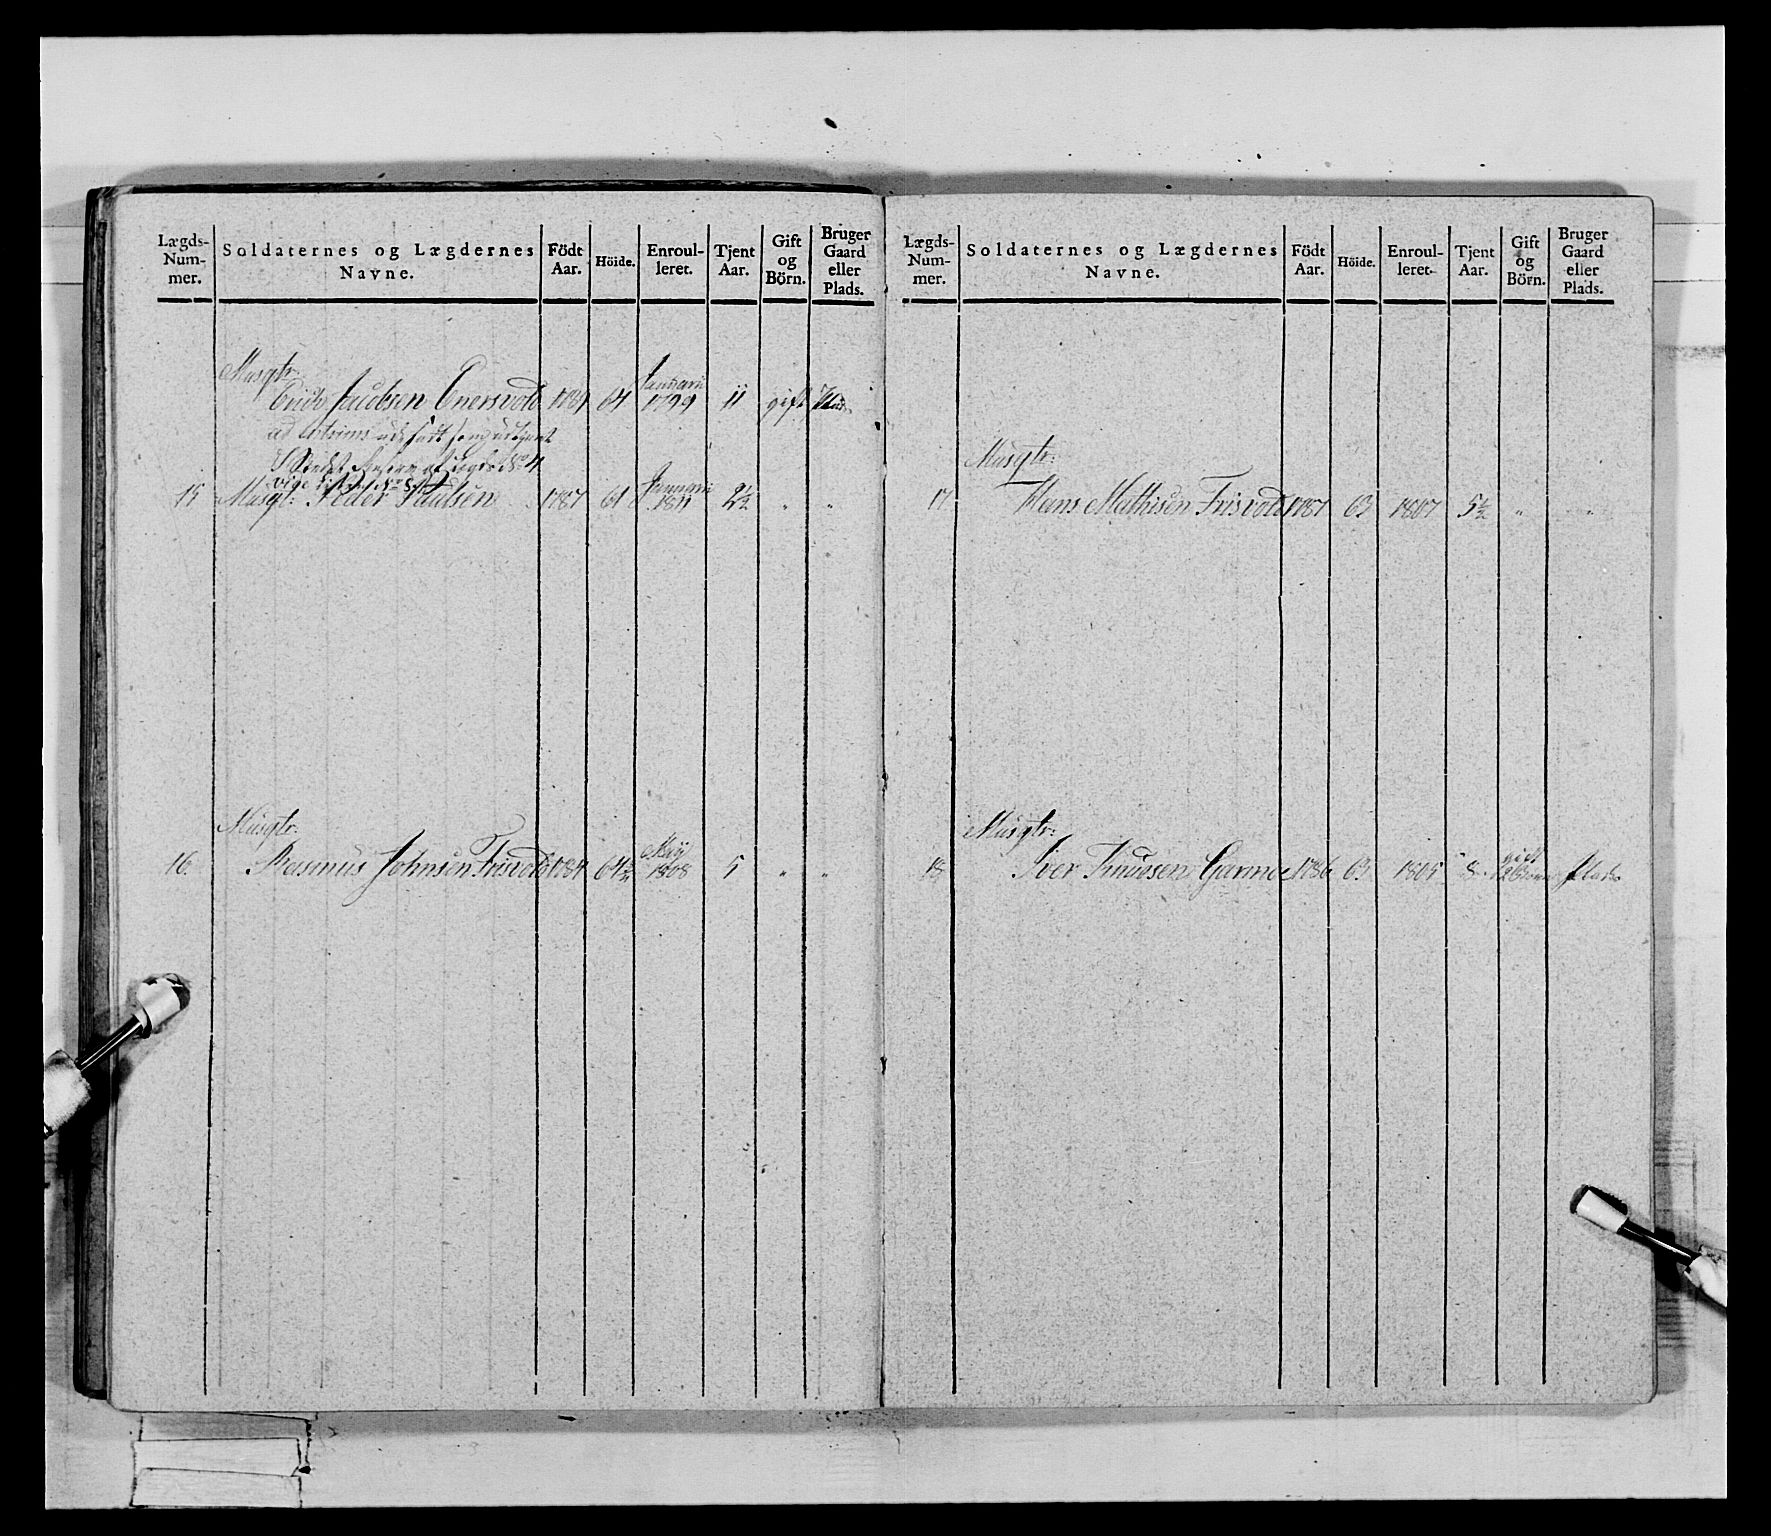 Lægds-Num-mer. Soldaternes og Lægdernes Navne. Födt Aar. Höide. Enroul-leret. Tjent Aar. Gift og Börn. Bruger Gaard eller Plads.
Musqtr:
Jacobsen Enersvold 64 Januarii 1799 11 gift
15 Musqtr: Peder Paulsen 1787 61 Januarii 1811 2½ " "
Musqtr:
16. Rasmus Johnsen Frisvold 64½ Maij 1808 5 " "
Lægds-Num-mer. Soldaternes og Lægdernes Navne. Födt Aar. Höide. Enroul-leret. Tjent Aar. Gift og Börn. Bruger Gaard eller Plads.
Musqtr:
17 Hans Mathisen Frisvold 1787 63 1807 5½ " "
Musqtr:
18 Iver Knudsen Garmoe 1786 63 1805 8 gift Plads